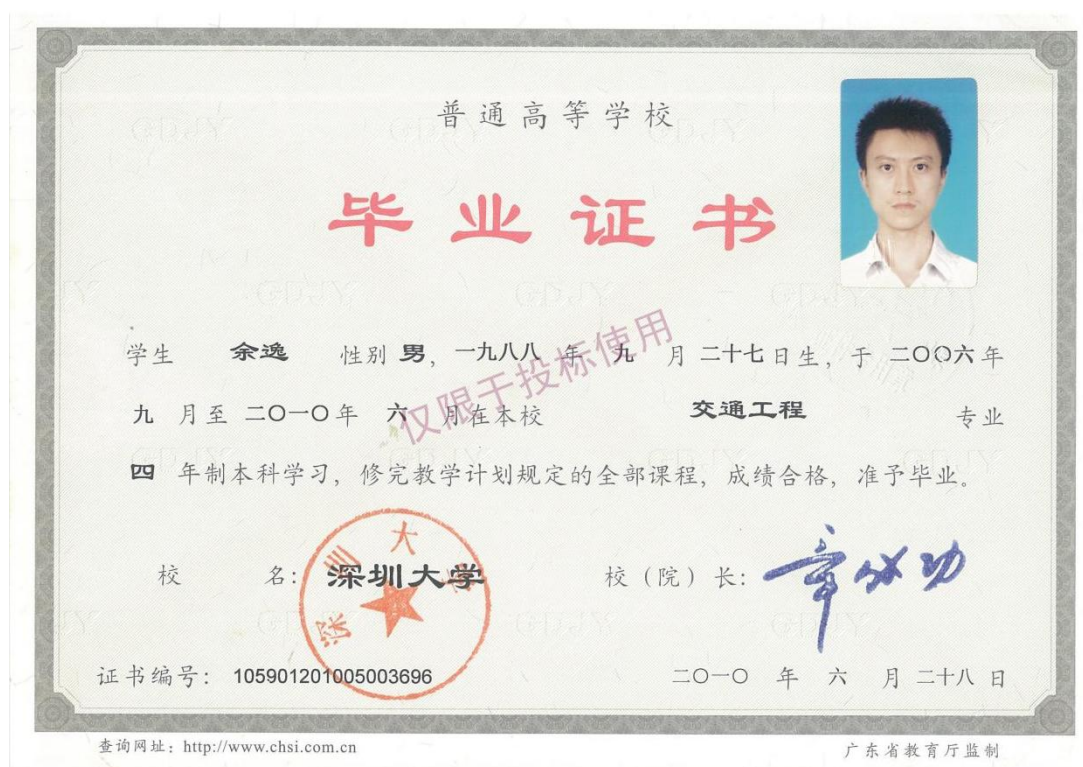 普通高等学校
毕业证书
学生 余逸 性别 男，一九八八 年 九 月 二十七日生，于 二〇〇六年
九 月至 二〇一〇年 六 月在本校 交通工程 专业
四 年制本科学习，修完教学计划规定的全部课程，成绩合格，准予毕业。
仅限于投标使用
校 名：深圳大学 校（院）长：章必功
深圳大学
证书编号：105901201005003696 二〇一〇 年 六 月 二十八 日
查询网址：http://www.chsi.com.cn 广东省教育厅监制